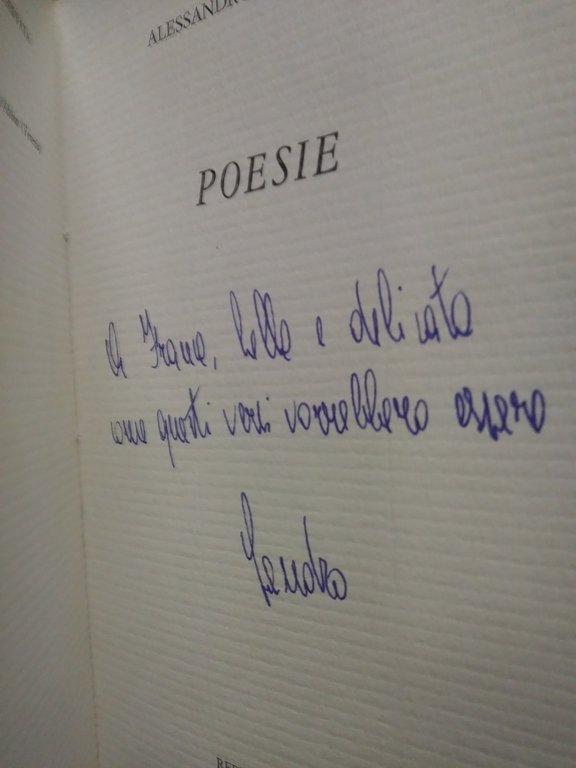 ALESSANDRO
POESIE
A Irane, bella e delicata
come questi versi vorrebbero essere
Sandro